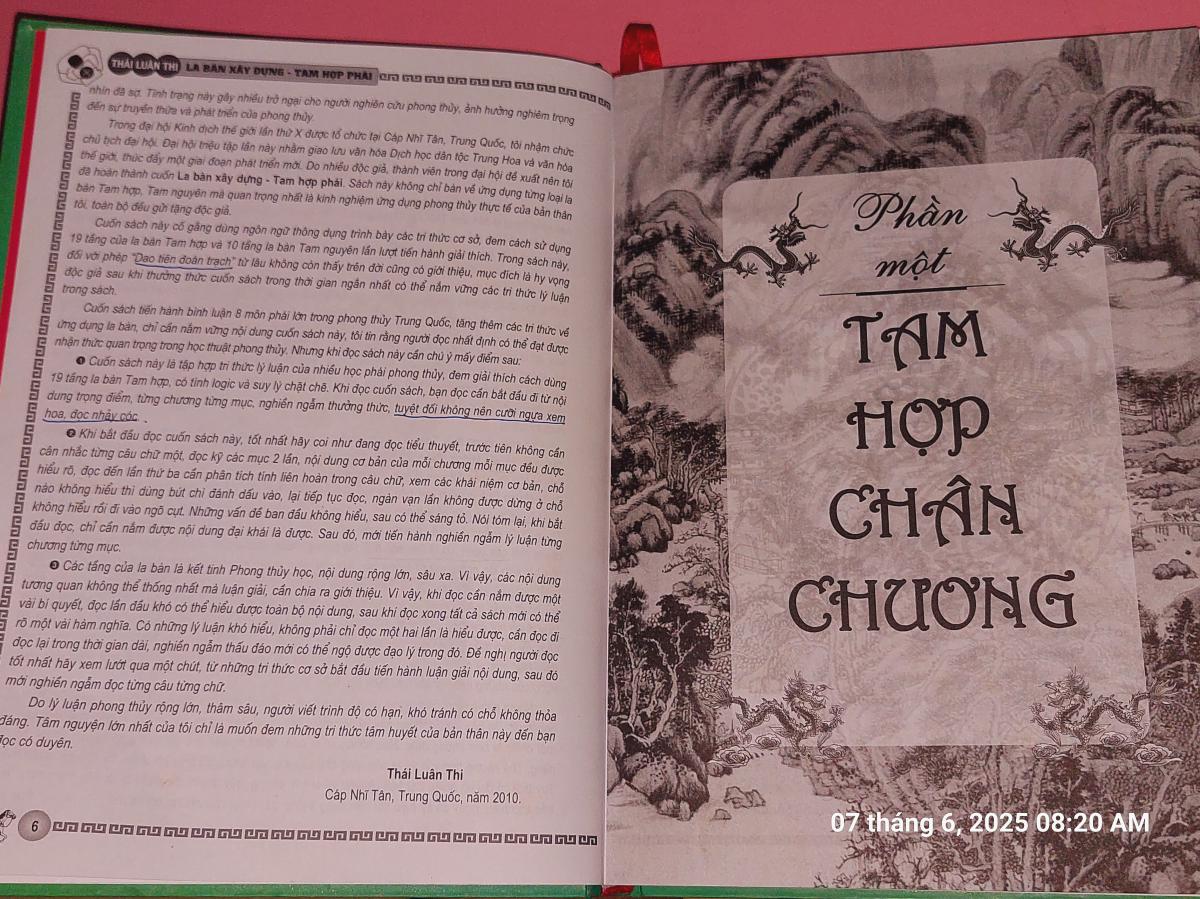 THÁI LUÂN THI LA BÀN XÂY DỰNG - TAM HỢP PHÁI
nhìn đã sợ. Tình trạng này gây nhiều trở ngại cho người nghiên cứu phong thủy, ảnh hưởng nghiêm trọng
đến sự truyền thừa và phát triển của phong thủy.
Trong đại hội Kinh dịch thế giới lần thứ X được tổ chức tại Cáp Nhĩ Tân, Trung Quốc, tôi nhậm chức
chủ tịch đại hội. Đại hội triệu tập lần này nhằm giao lưu văn hóa Dịch học dân tộc Trung Hoa và văn hóa
thế giới, thúc đẩy một giai đoạn phát triển mới. Do nhiều độc giả, thành viên trong đại hội đề xuất nên tôi
đã hoàn thành cuốn La bàn xây dựng - Tam hợp phái. Sách này không chỉ bàn về ứng dụng từng loại la
bàn Tam hợp, Tam nguyên mà quan trọng nhất là kinh nghiệm ứng dụng phong thủy thực tế của bản thân
tôi, toàn bộ đều gửi tặng độc giả.
Cuốn sách này cố gắng dùng ngôn ngữ thông dụng trình bày các tri thức cơ sở, đem cách sử dụng
19 tầng của la bàn Tam hợp và 10 tầng la bàn Tam nguyên lần lượt tiến hành giải thích. Trong sách này,
đối với phép "Dao tiên đoán trạch" từ lâu không còn thấy trên đời cũng có giới thiệu, mục đích là hy vọng
độc giả sau khi thưởng thức cuốn sách trong thời gian ngắn nhất có thể nắm vững các tri thức lý luận
trong sách.
Cuốn sách tiến hành bình luận 8 môn phái lớn trong phong thủy Trung Quốc, tăng thêm các tri thức về
ứng dụng la bàn, chỉ cần nắm vững nội dung cuốn sách này, tôi tin rằng người đọc nhất định có thể đạt được
nhận thức quan trọng trong học thuật phong thủy. Nhưng khi đọc sách này cần chú ý mấy điểm sau:
❶ Cuốn sách này là tập hợp tri thức lý luận của nhiều học phái phong thủy, đem giải thích cách dùng
19 tầng la bàn Tam hợp, có tính logic và suy lý chặt chẽ. Khi đọc cuốn sách, bạn đọc cần bắt đầu đi từ nội
dung trọng điểm, từng chương từng mục, nghiền ngẫm thưởng thức, tuyệt đối không nên cưỡi ngựa xem
hoa, đọc nhảy cóc.
❷ Khi bắt đầu đọc cuốn sách này, tốt nhất hãy coi như đang đọc tiểu thuyết, trước tiên không cần
cân nhắc từng câu chữ một, đọc kỹ các mục 2 lần, nội dung cơ bản của mỗi chương mỗi mục đều được
hiểu rõ, đọc đến lần thứ ba cần phân tích tính liên hoàn trong câu chữ, xem các khái niệm cơ bản, chỗ
nào không hiểu thì dùng bút chì đánh dấu vào, lại tiếp tục đọc, ngàn vạn lần không được dừng ở chỗ
không hiểu rồi đi vào ngõ cụt. Những vấn đề ban đầu không hiểu, sau có thể sáng tỏ. Nói tóm lại, khi bắt
đầu đọc, chỉ cần nắm được nội dung đại khái là được. Sau đó, mới tiến hành nghiền ngẫm lý luận từng
chương từng mục.
❸ Các tầng của la bàn là kết tinh Phong thủy học, nội dung rộng lớn, sâu xa. Vì vậy, các nội dung
tương quan không thể thống nhất mà luận giải, cần chia ra giới thiệu. Vì vậy, khi đọc cần nắm được một
vài bí quyết, đọc lần đầu khó có thể hiểu được toàn bộ nội dung, sau khi đọc xong tất cả sách mới có thể
rõ một vài hàm nghĩa. Có những lý luận khó hiểu, không phải chỉ đọc một hai lần là hiểu được, cần đọc đi
đọc lại trong thời gian dài, nghiền ngẫm thấu đáo mới có thể ngộ được đạo lý trong đó. Đề nghị người đọc
tốt nhất hãy xem lướt qua một chút, từ những tri thức cơ sở bắt đầu tiến hành luận giải nội dung, sau đó
mới nghiền ngẫm đọc từng câu từng chữ.
Do lý luận phong thủy rộng lớn, thâm sâu, người viết trình độ có hạn, khó tránh có chỗ không thỏa
đáng. Tâm nguyện lớn nhất của tôi chỉ là muốn đem những tri thức tâm huyết của bản thân này đến bạn
đọc có duyên.
Thái Luân Thi
Cáp Nhĩ Tân, Trung Quốc, năm 2010.
6
Phần
một
TAM
HỢP
CHÂN
CHƯƠNG
07 tháng 6, 2025 08:20 AM